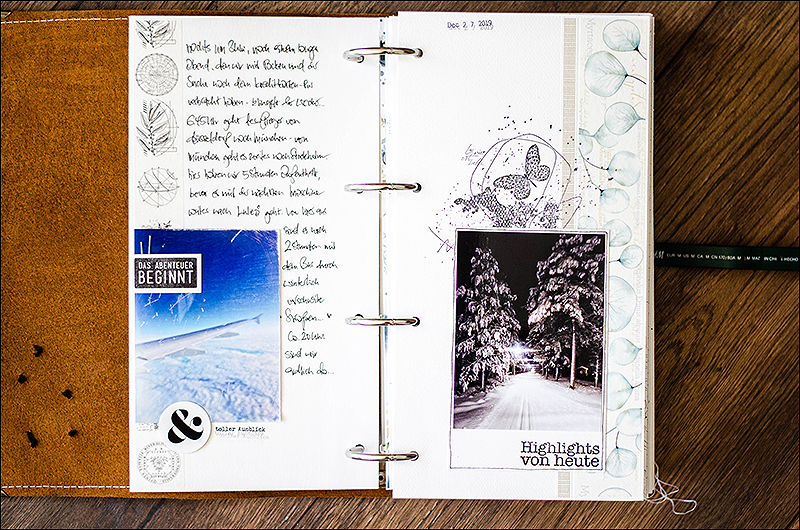 nachts um 3Uhr, nach einem langen
Abend, den wir mit Packen und der
Suche nach dem Kreditkarten-Pin
verbracht haben -
6:45 Uhr geht der Flieger von
Düsseldorf nach München - von
München geht es weiter nach Stockholm.
Hier haben wir 5 Stunden Aufenthalt,
bevor es mit der nächsten Maschine
weiter nach Luleå geht. Von hier aus
sind es noch
2 Stunden mit
dem Bus durch
winterlich
verschneite
Straßen... ♥
Ca. 20 Uhr
sind wir
endlich da...
DAS ABENTEUER
BEGINNT
&
toller Ausblick
Dec 2 7. 2019
Highlights
von heute